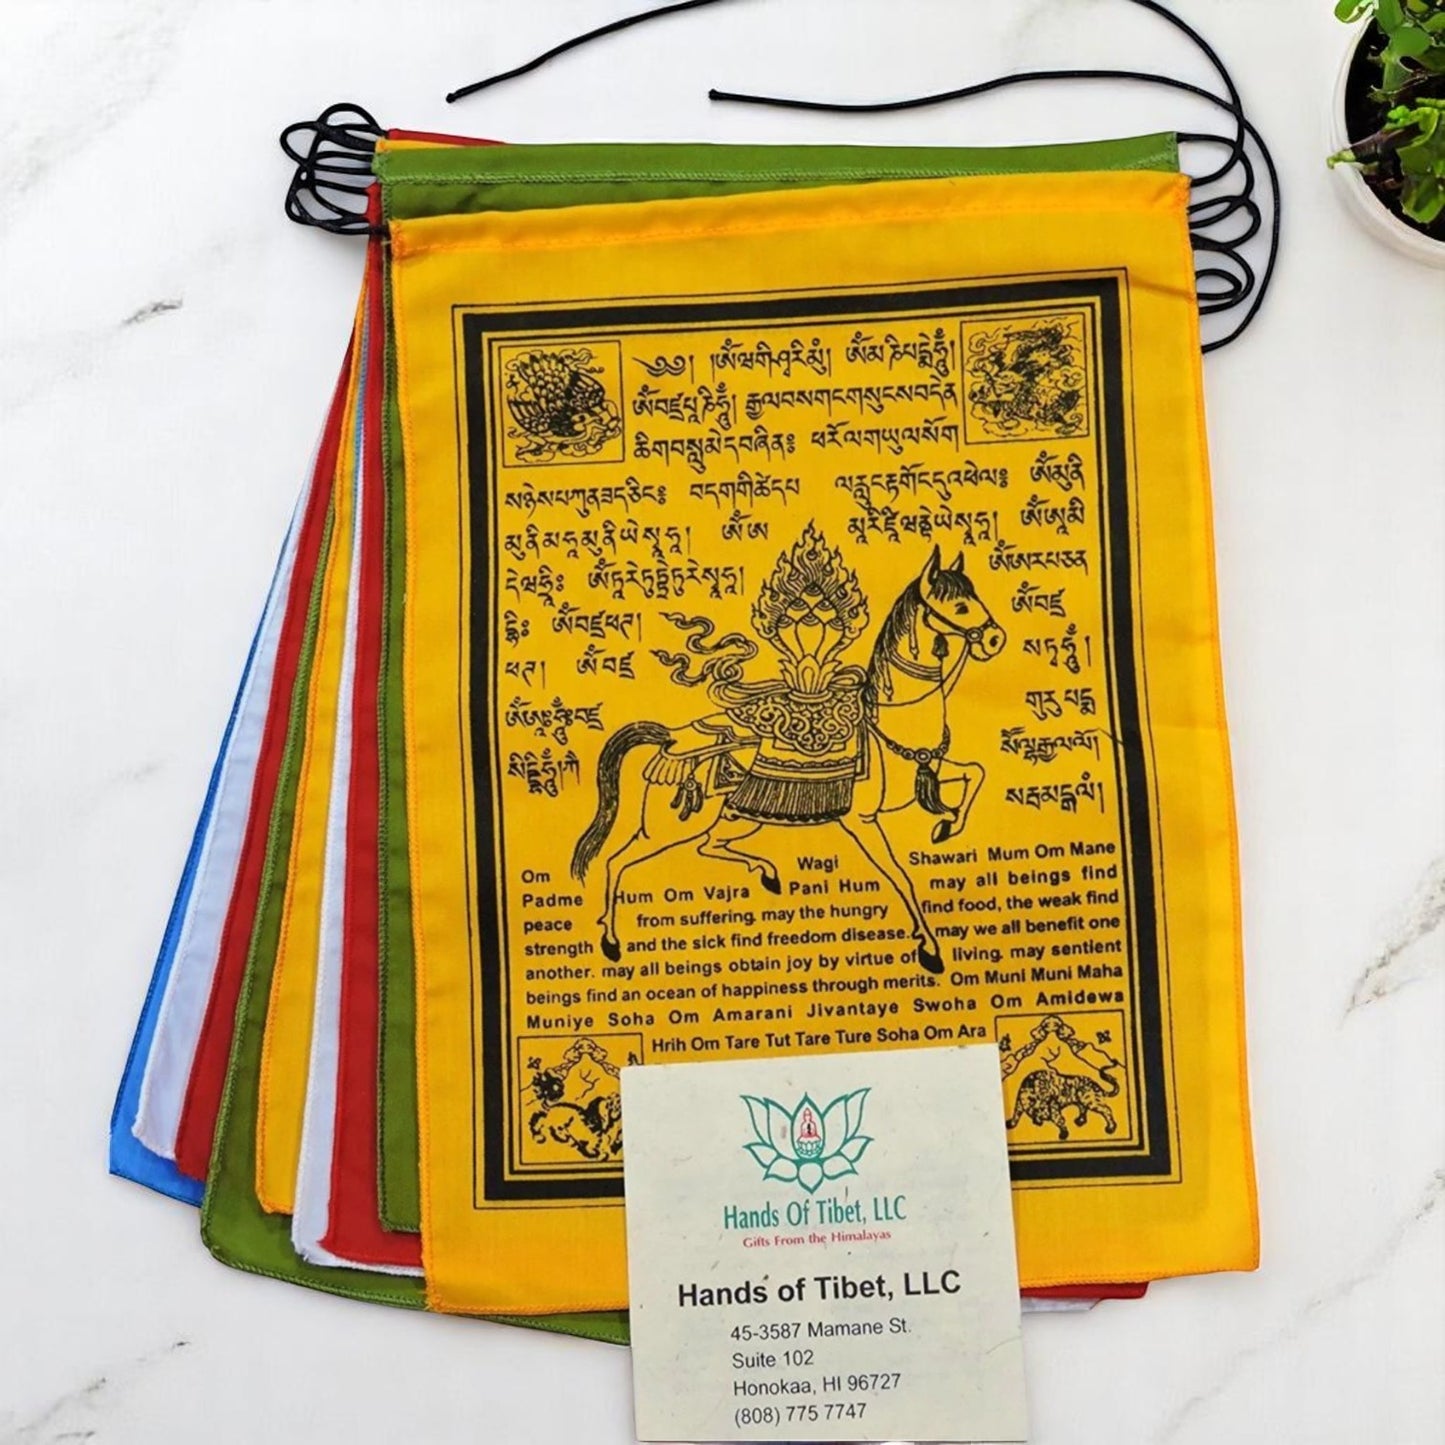 ༄༅། །ཨོཾ་ཝཱ་གི་ཤྭ་རི་མུཾ། ཨོཾ་མ་ཎི་པདྨེ་ཧཱུྃ།
ཨོཾ་བཛྲ་པཱ་ཎི་ཧཱུྃ། རྒྱལ་བས་གང་གསུངས་བདེན་
ཚིག་བསླུ་མེད་བཞིན༔ ཕ་རོལ་གཡུལ་སོག་
ཨོཾ་མུ་ནི་
མུ་ནི་མ་ཧཱ་མུ་ནི་ཡེ་སྭཱ་ཧཱ། ཨོཾ་ཨ་
ཨོཾ་ཨཱ་མི་
དེ་ཝ་ཧྲཱིཿ ཨོཾ་ཏཱ་རེ་ཏུཏྟཱ་རེ་ཏུ་རེ་སྭཱ་ཧཱ། ཨོཾ་ཨ་ར་པ་ཙ་ན་
ཨོཾ་བཛྲ་
ཨོཾ་བཛྲ་
ས་ཏྭ་ཧཱུྃ།
ཨོཾ་ཨཱཿ་ཧཱུྃ་བཛྲ་
གུ་རུ་པདྨ་
སིདྡྷི་ཧཱུྃ།
Om Wagi Shawari Mum Om Mane
Padme Hum Om Vajra Pani Hum may all beings find
peace from suffering. may the hungry find food, the weak find
strength and the sick find freedom disease. may we all benefit one
another. may all beings obtain joy by virtue of living. may sentient
beings find an ocean of happiness through merits. Om Muni Muni Maha
Muniye Soha Om Amarani Jivantaye Swoha Om Amidewa
Hrih Om Tare Tut Tare Ture Soha Om Ara
Hands Of Tibet, LLC
Gifts From the Himalayas
Hands of Tibet, LLC
45-3587 Mamane St.
Suite 102
Honokaa, HI 96727
(808) 775 7747